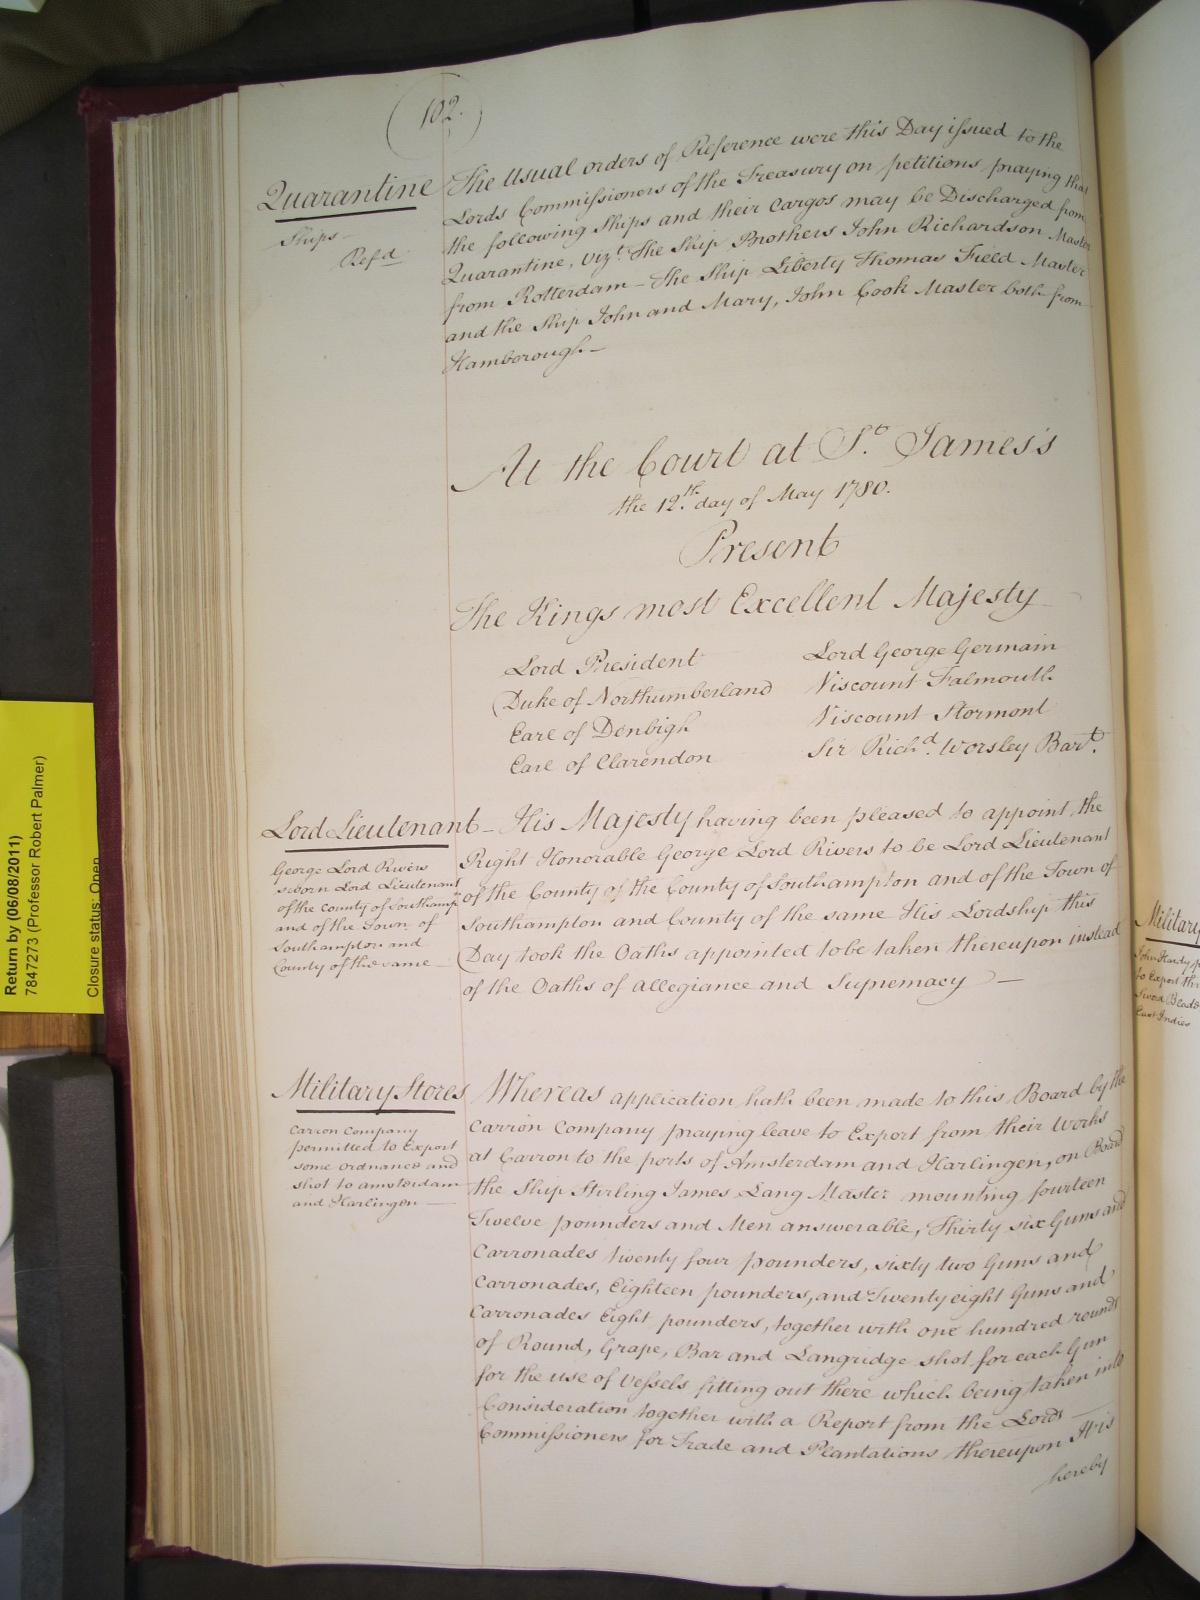 102.
Quarantine
Ships
Refd
The Usual orders of Reference were this Day issued to the
Lords Commissioners of the Treasury on petitions praying that
the following Ships and their Cargos may be Discharged from
Quarantine, Vizt. The Ship Brothers John Richardson Master
from Rotterdam - The Ship Liberty Thomas Field Master
and the Ship John and Mary, John Cook Master both from
Hamborough -
At the Court at St. James's
the 12th. day of May 1780.
Present
The Kings most Excellent Majesty
Lord President
Duke of Northumberland
Earl of Denbigh
Earl of Clarendon
Lord George Germain
Viscount Falmouth
Viscount Stormont
Sir Richd. Worsley Bart.
Lord Lieutenant -
George Lord Rivers
sworn Lord Lieutenant
of the County of Southampn
and of the Town of
Southampton and
County of the same
His Majesty having been pleased to appoint the
Right Honorable George Lord Rivers to be Lord Lieutenant
of the County of the County of Southampton and of the Town of
Southampton and County of the same His Lordship this
Day took the Oaths appointed to be taken thereupon instead
of the Oaths of Allegiance and Supremacy -
Military Stores
Carron Company
permitted to Export
some ordnance and
shot to amsterdam
and Harlingen -
Whereas application hath been made to this Board by the
Carron Company praying leave to Export from their Works
at Carron to the ports of Amsterdam and Harlingen, on Board
the Ship Stirling James Lang Master mounting fourteen
Twelve pounders and Men answerable, Thirty six Guns and
Carronades twenty four pounders, sixty two Guns and
Carronades, Eighteen pounders, and Twenty eight Guns and
Carronades Eight pounders, together with one hundred rounds
of Round, Grape, Bar and Langridge shot for each Gun
for the use of Vessels fitting out there which being taken into
Consideration together with a Report from the Lords
Commissioners for Trade and Plantations thereupon It is
hereby
Military
John Hardy p
to Export thi
Sword Blade
East Indies
Return by (06/08/2011)
7847273 (Professor Robert Palmer)
Closure status: Open